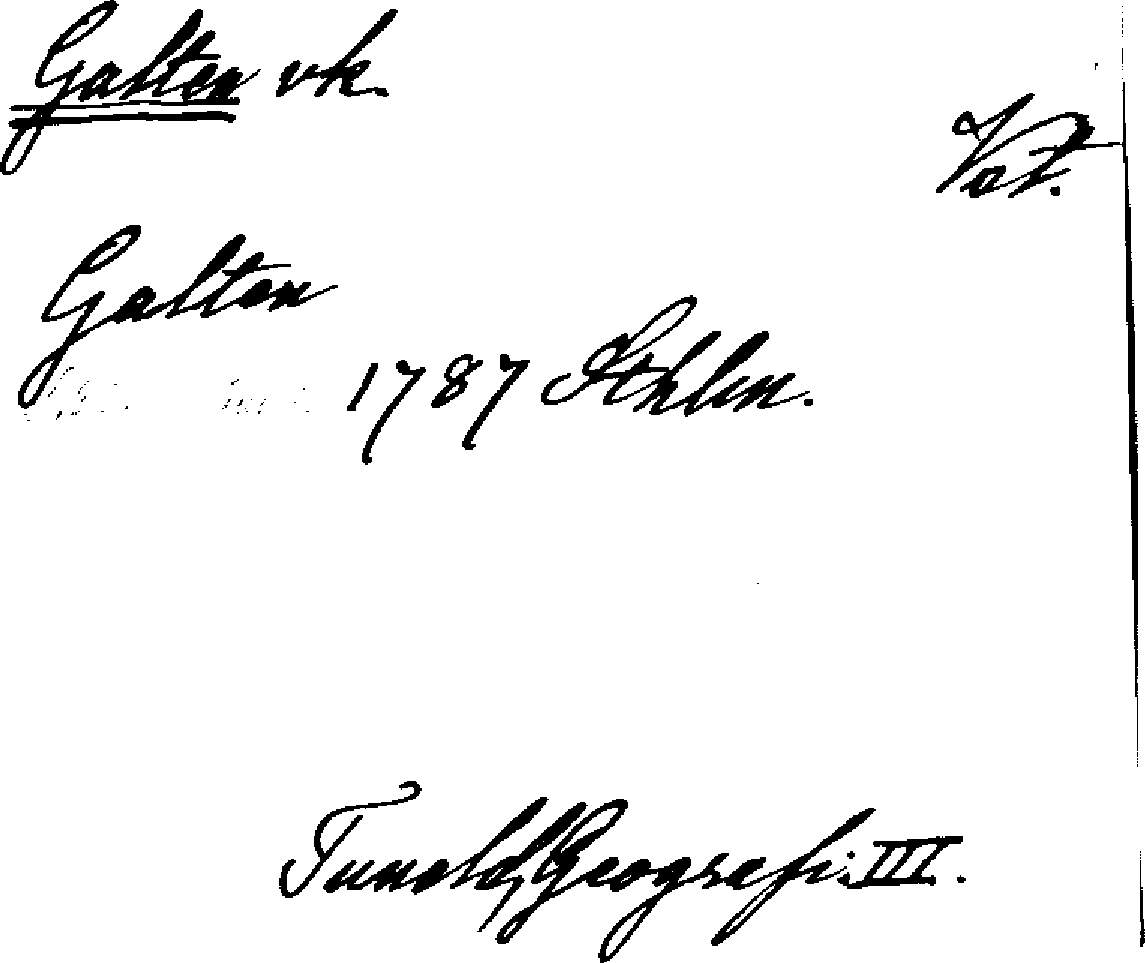 Galten vk.
Vat.
Galten
1787 Sthlm.
Tuneld, Geografi III.